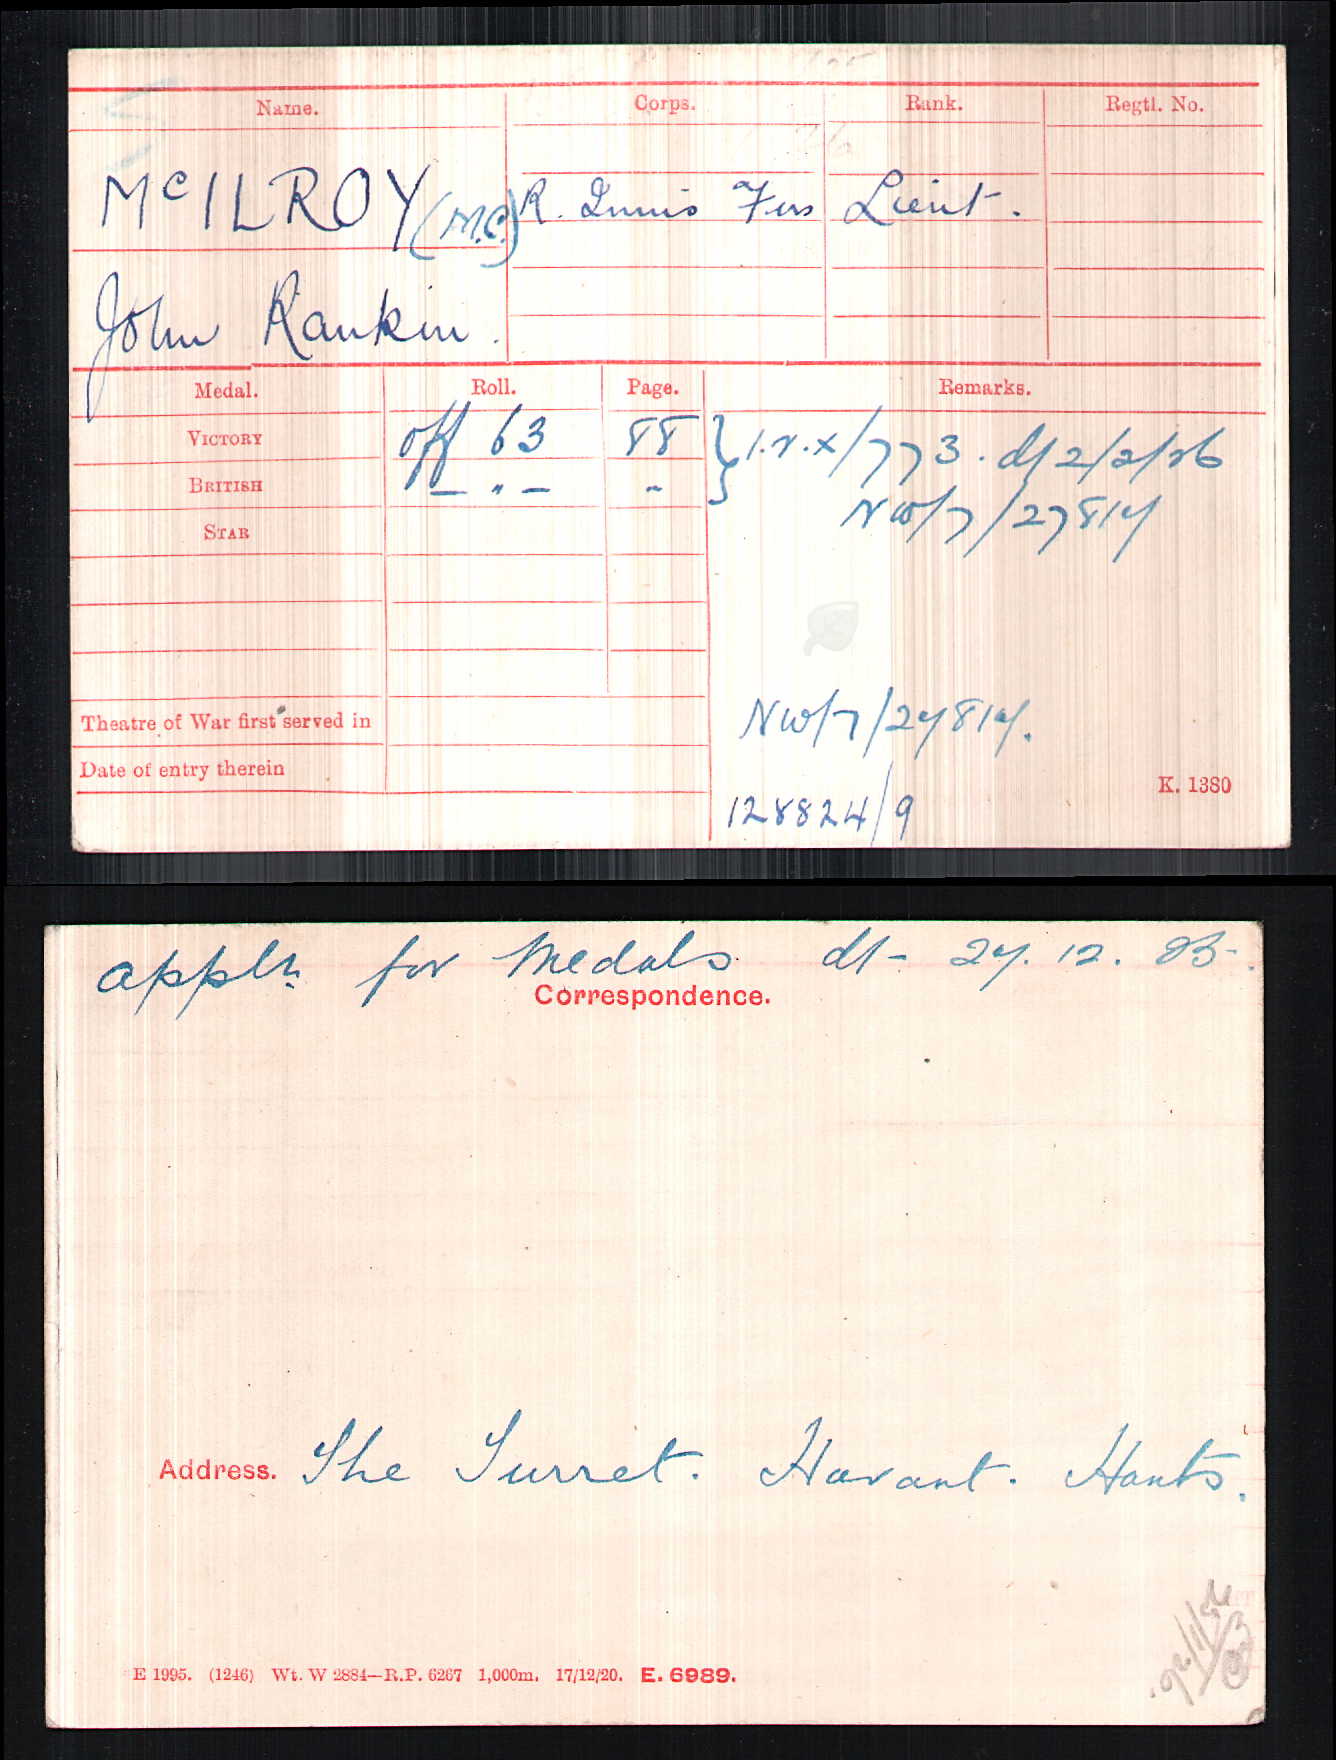 Name. Corps. Rank. Regtl. No.
McILROY (M.C.) R. Innis Fus Lieut.
John Rankin.
Medal. Roll. Page. Remarks.
VICTORY off 63 88 } I.V.X/773. dt 2/2/26
BRITISH — " — "
NW/7/27814
STAR
Theatre of War first served in NW/7/27814.
Date of entry therein
K. 1380
128824/9
appln for Medals dt - 27. 12. 25.
Correspondence.
Address. The Turret. Havant. Hants.
E 1995. (1246) Wt. W 2884—R.P. 6267 1,000m. 17/12/20. E. 6989.